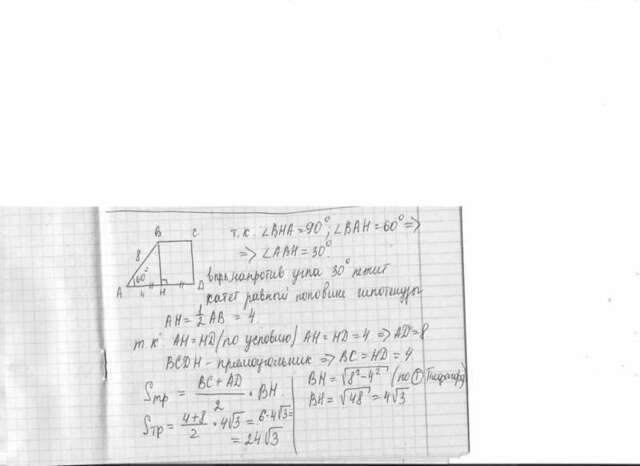 B C
8
60°
A 4 H D
т.к. ∠BHA = 90°; ∠BAH = 60° =>
=> ∠ABH = 30°.
напротив угла 30° лежит
катет равный половине гипотенузы
AH = 1/2 AB = 4
т.к AH = HD (по условию) AH = HD = 4 => AD = 8
BCDH - прямоугольник => BC = HD = 4
Sтр = (BC + AD)/2 · BH
Sтр = (4+8)/2 · 4√3 = 6·4√3 =
= 24√3
BH = √(8²-4²) (по Т Пифагора)
BH = √48 = 4√3